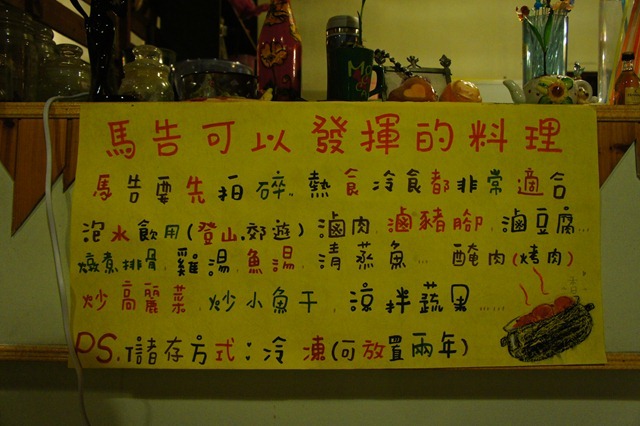 馬告可以發揮的料理
馬告要先拍碎, 熱食冷食都非常適合
泡水飲用(登山.郊遊) 滷肉, 滷豬腳, 滷豆腐...
燉煮排骨, 雞湯, 魚湯, 清蒸魚... 醃肉(烤肉)
炒高麗菜, 炒小魚干, 涼拌蔬果......
PS. 儲存方式:冷凍(可放置兩年)